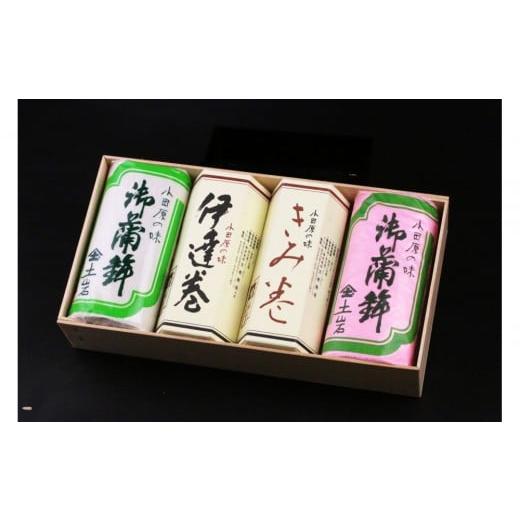 小田原の味
御蒲鉾
土岩
小田原の味
伊達巻
小田原の味
きみ巻
小田原の味
御蒲鉾
土岩